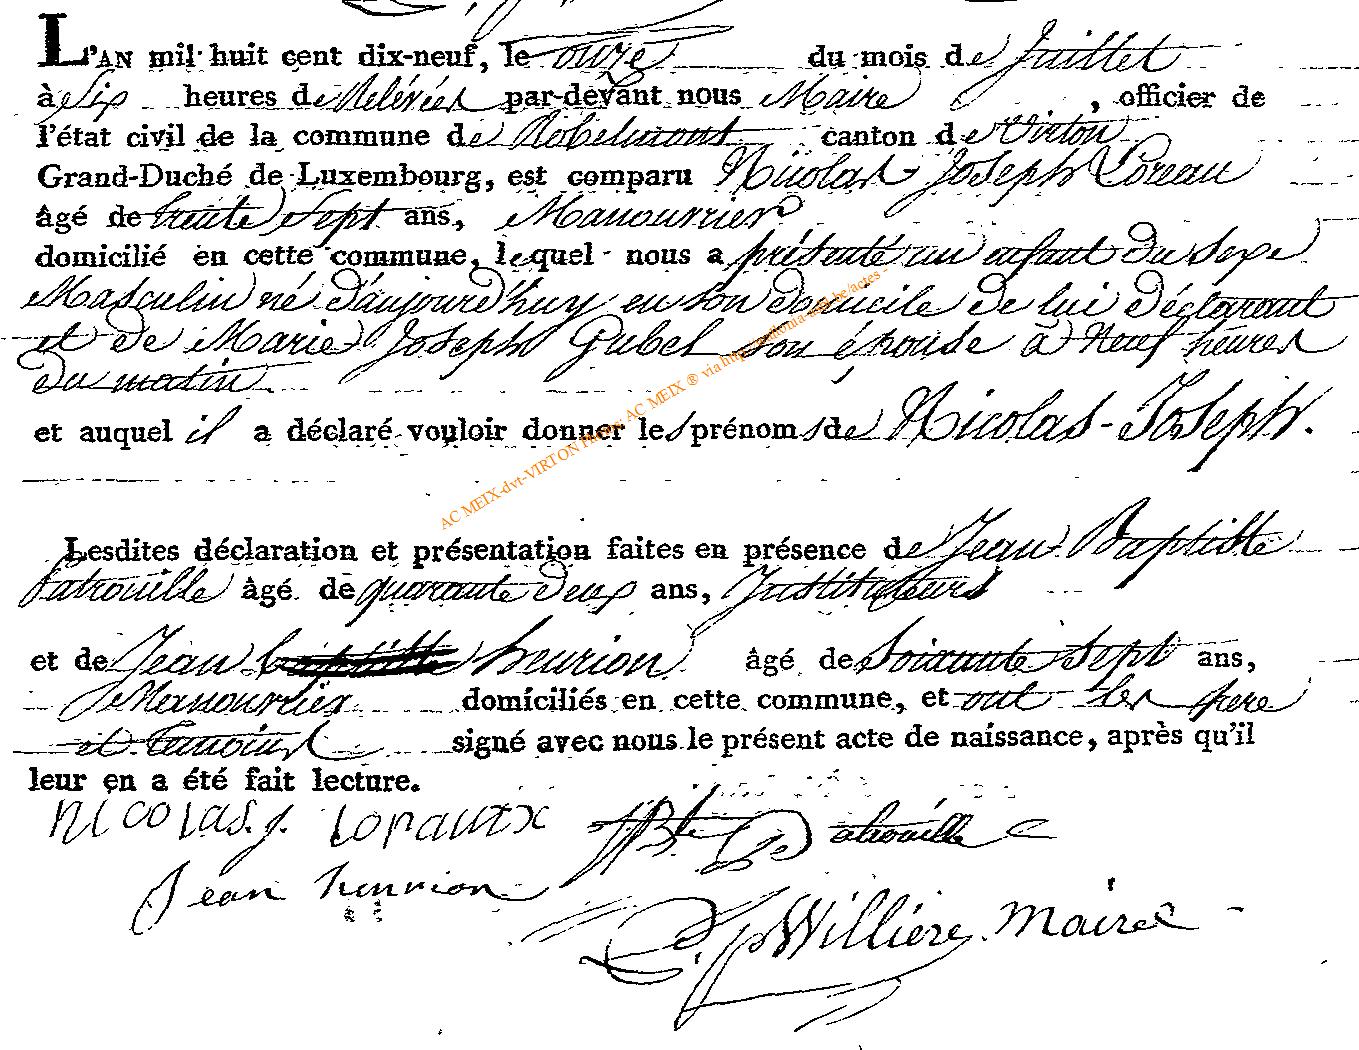 L'AN mil huit cent dix-neuf, le onze du mois de Juillet
à Six heures de Relévées par-devant nous Maire , officier de
l'état civil de la commune de Robelmont canton de Virton
Grand-Duché de Luxembourg, est comparu Nicolas Joseph Loreau
âgé de trente Sept ans, Manouvrier
domicilié en cette commune, lequel nous a présenté un enfant du Sexe
Masculin né d'aujourd'huy en son domicile de lui déclarant
et de Marie Joseph Gubel son épouse à Neuf heures
du matin
et auquel il a déclaré vouloir donner les prénoms de Nicolas-Joseph.
Lesdites déclaration et présentation faites en présence de Jean Baptiste
Patrouille âgé de quarante deux ans, Instituteurs
et de Jean henrion âgé de Soixante Sept ans,
Manouvrier domiciliés en cette commune, et ont les pere
et temoins signé avec nous le présent acte de naissance, après qu'il
leur en a été fait lecture.
Nicolas. j. Loraux JBte Patrouille
Jean henrion
Willière Maire
AC MEIX-dvt-VIRTON AC MEIX ® via be/actes -